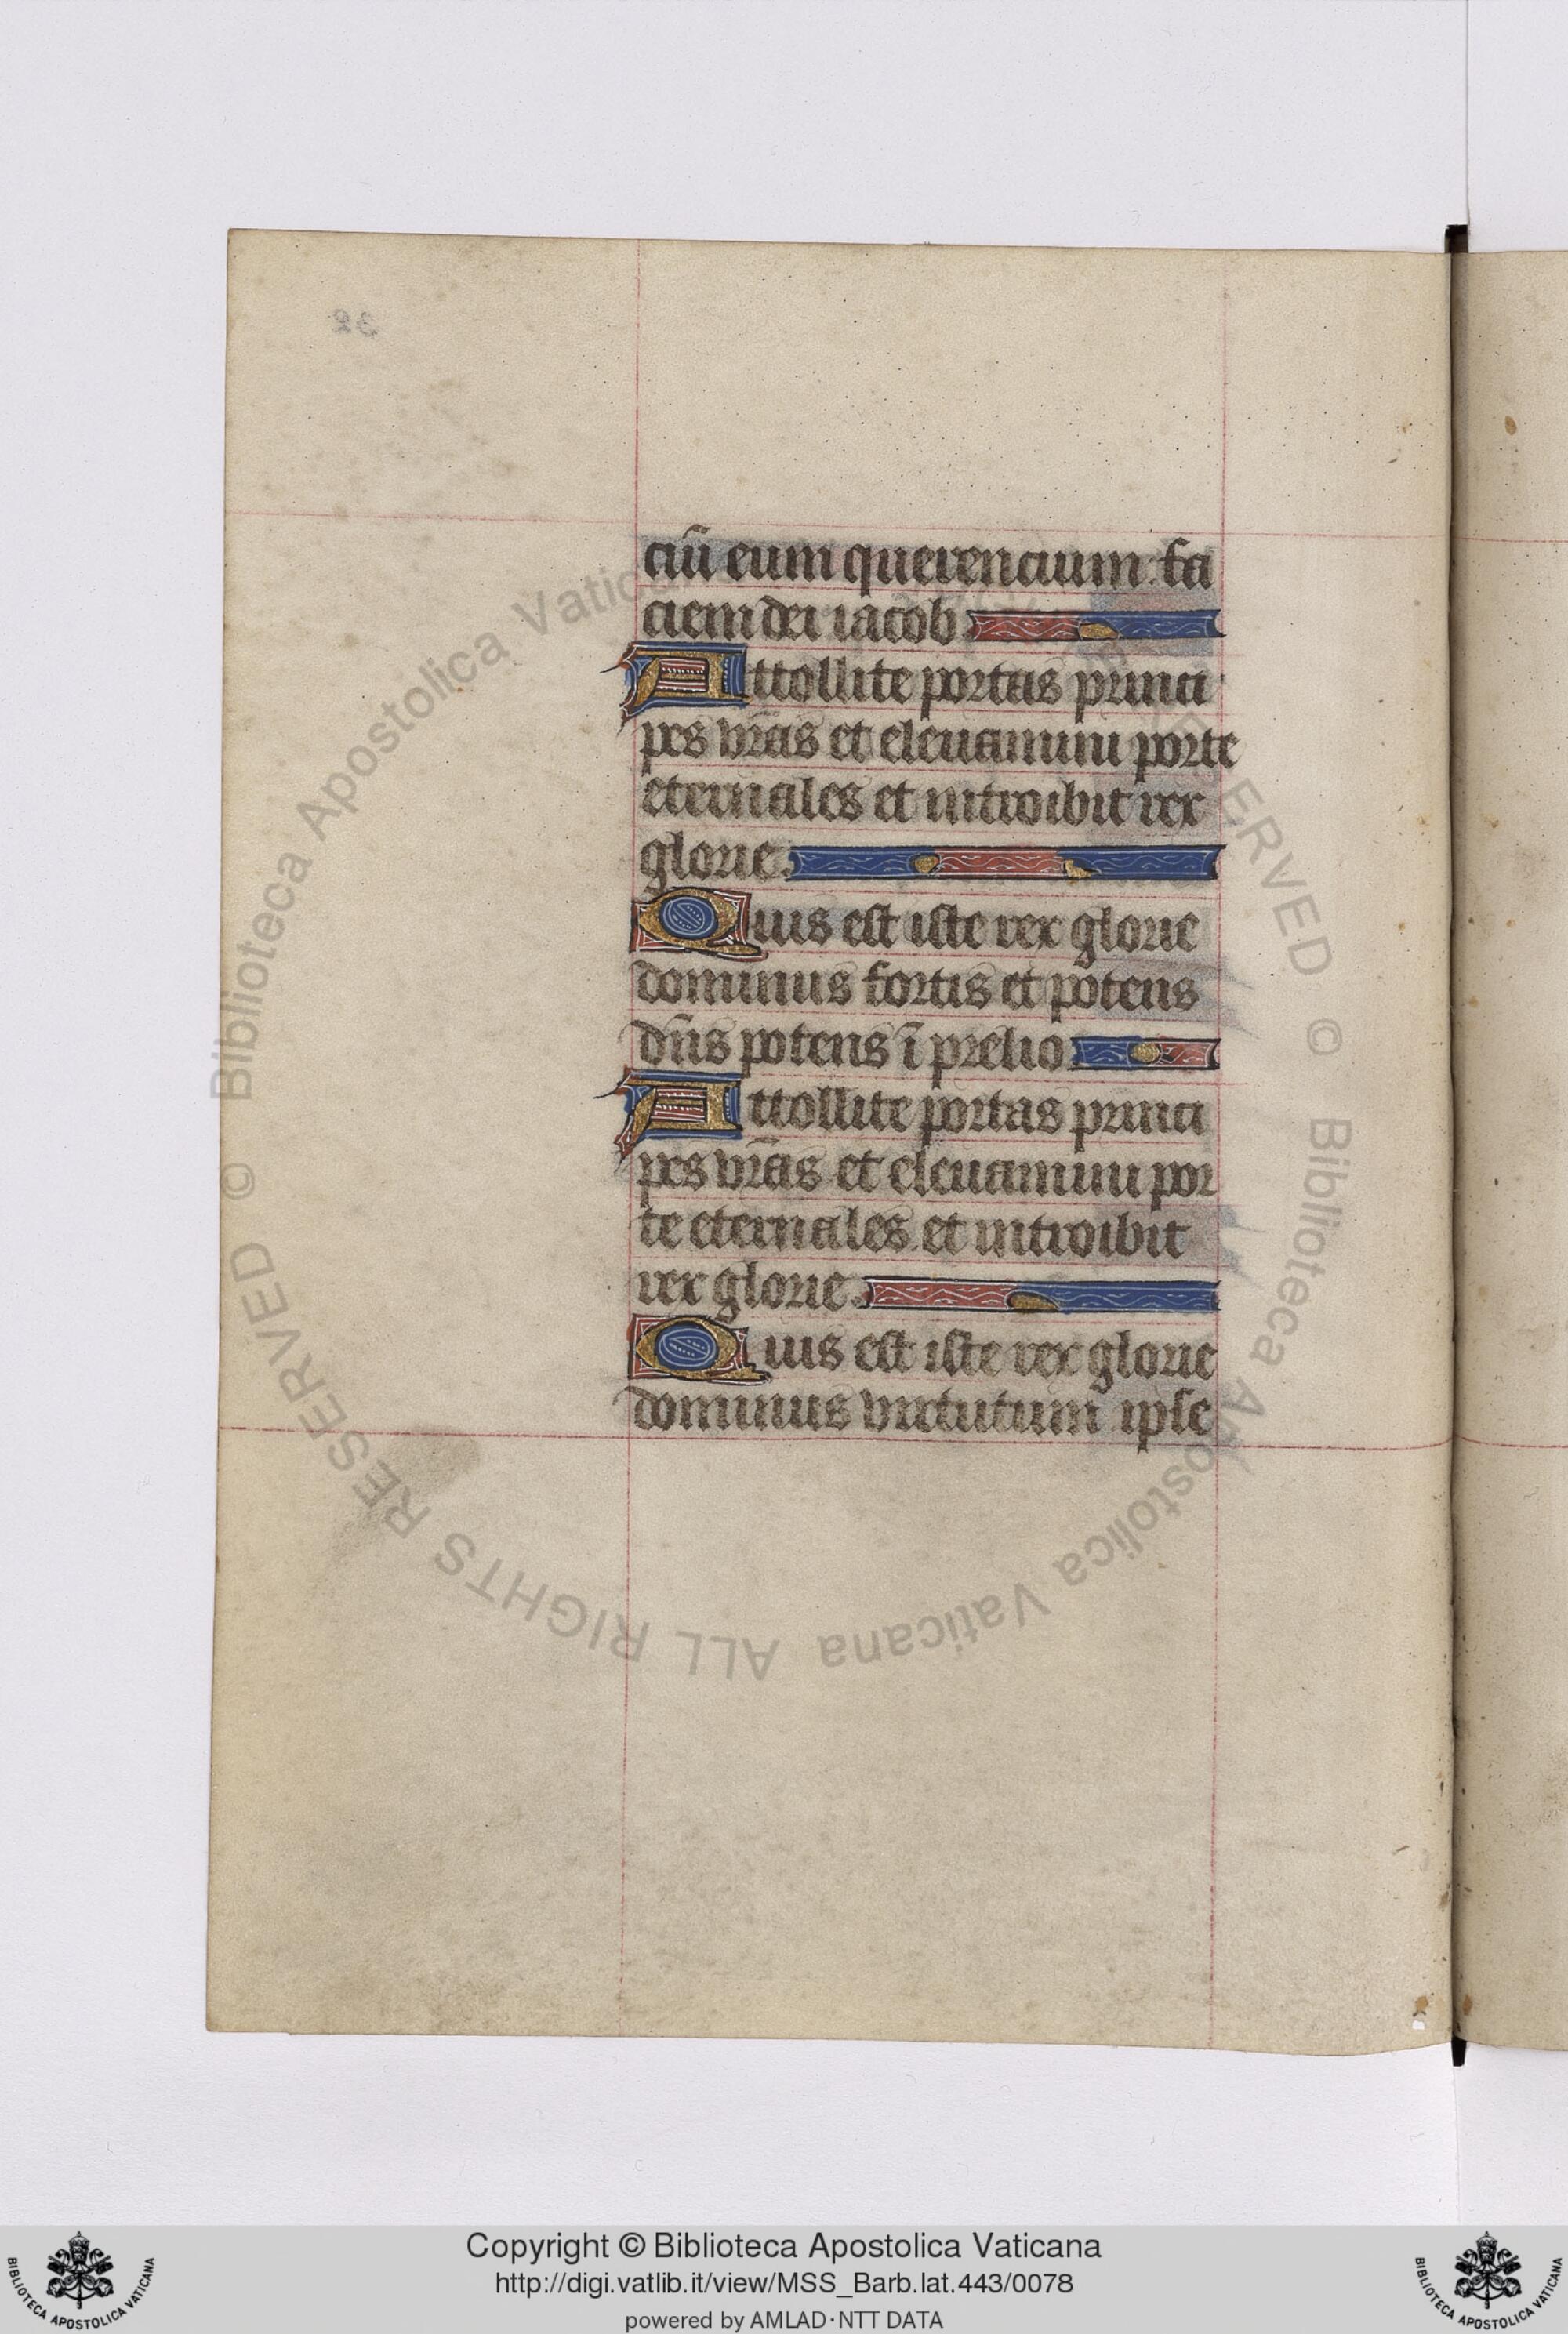 ciū eum querencium fa
ciem dei iacob.
Attollite portas princi
pes vr̄as et eleuamini porte
eternales et introibit rex
glorie.
Quis est iste rex glorie
dominus fortis et potens
dn̄s potens ī prelio.
Attollite portas princi
pes vr̄as et eleuamini por
te eternales et introibit
rex glorie.
Quis est iste rex glorie
dominus virtutum ipse
© Biblioteca Apostolica Vaticana ALL RIGHTS RESERVED
Copyright © Biblioteca Apostolica Vaticana
http://digi.vatlib.it/view/MSS_Barb.lat.443/0078
powered by AMLAD·NTT DATA
BIBLIOTECA APOSTOLICA VATICANA
BIBLIOTECA APOSTOLICA VATICANA